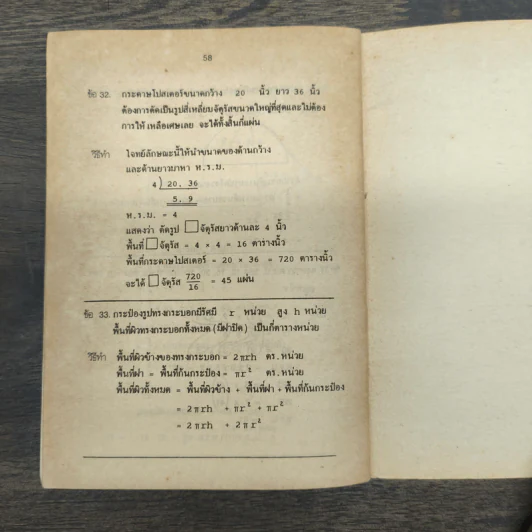 58
ข้อ 32. กระดาษโปสเตอร์ขนาดกว้าง 20 นิ้ว ยาว 36 นิ้ว
ต้องการตัดเป็นรูปสี่เหลี่ยมจัตุรัสขนาดใหญ่ที่สุดและไม่ต้อง
การให้ เหลือเศษเลย จะได้ทั้งสิ้นกี่แผ่น
วิธีทำ โจทย์ลักษณะนี้ให้นำขนาดของด้านกว้าง
และด้านยาวมาหา ห.ร.ม.
4 ) 20. 36
5. 9
ห.ร.ม. = 4
แสดงว่า ตัดรูป □ จัตุรัสยาวด้านละ 4 นิ้ว
พื้นที่ □ จัตุรัส = 4 × 4 = 16 ตารางนิ้ว
พื้นที่กระดาษโปสเตอร์ = 20 × 36 = 720 ตารางนิ้ว
จะได้ □ จัตุรัส 720/16 = 45 แผ่น
ข้อ 33. กระป๋องรูปทรงกระบอกมีรัศมี r หน่วย สูง h หน่วย
พื้นที่ผิวทรงกระบอกทั้งหมด (มีฝาปิด) เป็นกี่ตารางหน่วย
วิธีทำ พื้นที่ผิวข้างของทรงกระบอก = 2πrh ตร.หน่วย
พื้นที่ฝา = พื้นที่ก้นกระป๋อง = πr² ตร.หน่วย
พื้นที่ผิวทั้งหมด = พื้นที่ผิวข้าง + พื้นที่ฝา + พื้นที่ก้นกระป๋อง
= 2πrh + πr² + πr²
= 2πrh + 2πr²